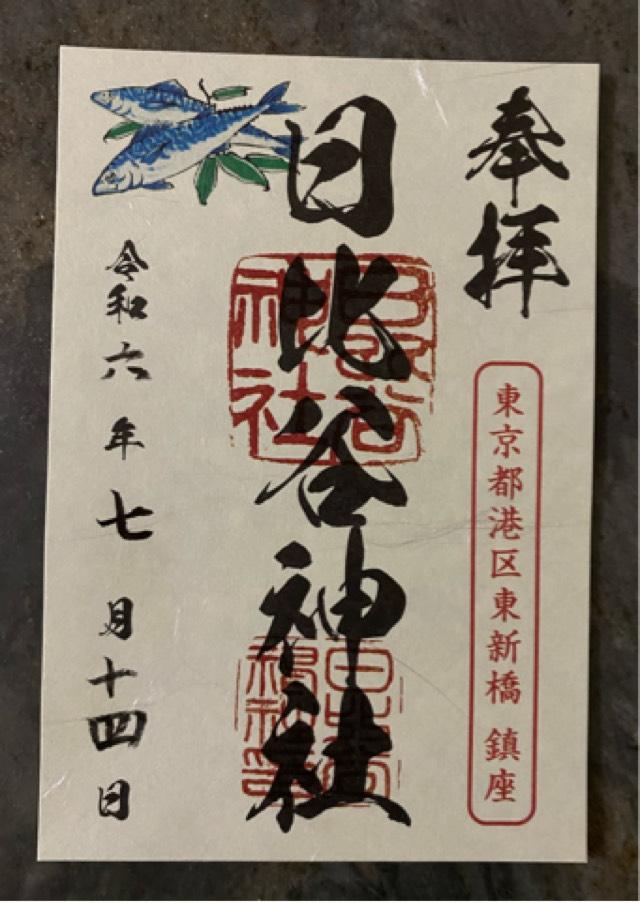 奉拝
東京都港区東新橋 鎮座
日比谷神社
日比谷神社
令和六年七月十四日